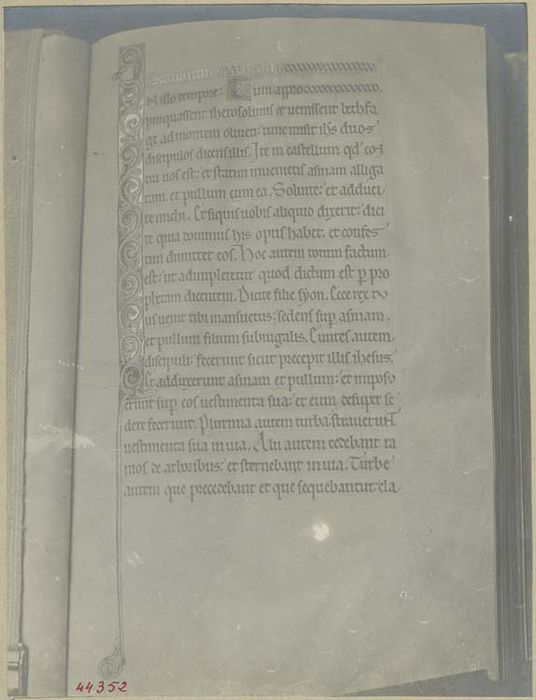 Secundum matheum.
N illo tempore: Cum appro
pinquassent iherosolimis et venissent bethfa
ge ad montem oliveti: tunc misit ihs duos
discipulos dicens illis. Ite in castellum qd con
tra vos est: et statim invenietis asinam alliga
tam. et pullum cum ea. Solvite: et adduci
te michi. Et siquis vobis aliquid dixerit: dici
te quia dominus his opus habet. et confes
tim dimittet eos. Hoc autem totum factum
est: ut adimpleretur quod dictum est p pro
phetam dicentem. Dicite filie syon. Ecce rex tu
us venit tibi mansuetus: sedens sup asinam.
et pullum filium subiugalis. Euntes autem
discipuli: fecerunt sicut precepit illis ihesus.
Et adduxerunt asinam et pullum: et imposu
erunt sup eos vestimenta sua: et eum desuper se
dere fecerunt. Plurima autem turba: straverunt
vestimenta sua in via. Alii autem cedebant ra
mos de arboribus: et sternebant in via. Turbe
autem que precedebant et que sequebantur cla
44352